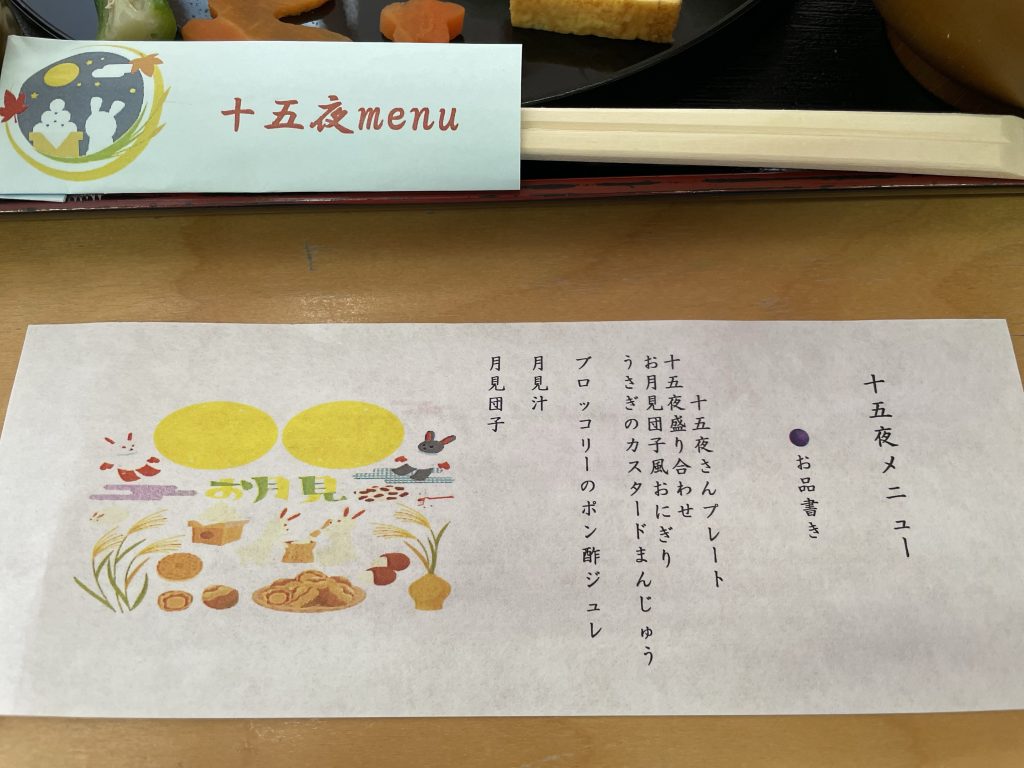 十五夜menu
十五夜メニュー
お品書き
十五夜さんプレート
十五夜盛り合わせ
お月見団子風おにぎり
うさぎのカスタードまんじゅう
ブロッコリーのポン酢ジュレ
月見汁
月見団子
お月見